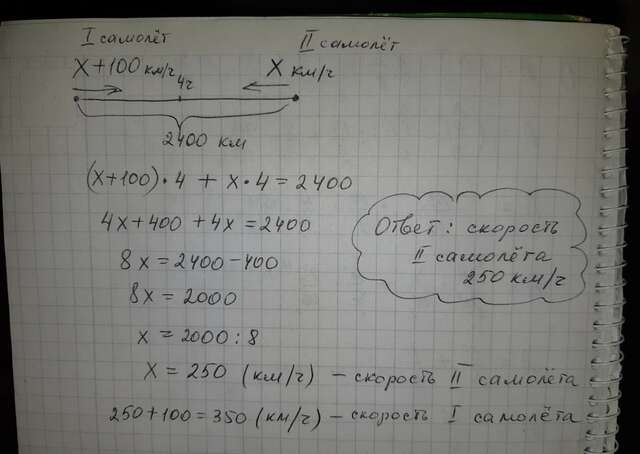 I самолёт
II самолёт
X+100 км/ч
X км/ч
4ч
2400 км
(x+100)·4 + x·4 = 2400
4x+400 +4x = 2400
8x = 2400-400
8x = 2000
x = 2000:8
x = 250 (км/ч) - скорость II самолёта
250+100=350 (км/ч) - скорость I самолёта
Ответ: скорость
II самолёта
250 км/ч